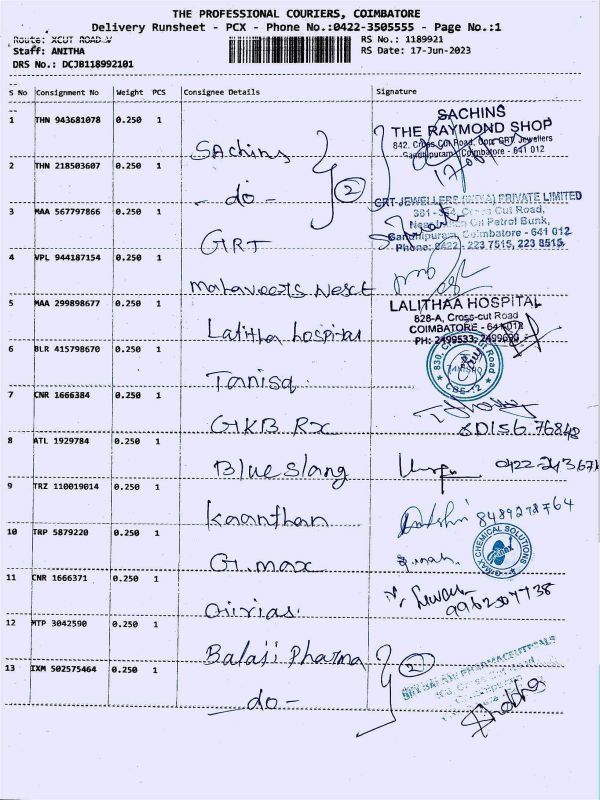 THE PROFESSIONAL COURIERS, COIMBATORE
Delivery Runsheet - PCX - Phone No.:0422-3505555 - Page No.:1
Route: XCUT ROAD
RS No.: 1189921
Staff: ANITHA
RS Date: 17-Jun-2023
DRS No.: DCJB118992101
S No Consignment No Weight PCS Consignee Details Signature
1 THN 943681078 0.250 1
Sachins
SACHINS
THE RAYMOND SHOP
842, Cross Cut Road, Opp. GRT Jewellers
Gandhipuram, Coimbatore - 641 012
2 THN 218503607 0.250 1
- do -
2
3 MAA 567797866 0.250 1
GRT
GRT JEWELLERS (INDIA) PRIVATE LIMITED
Cross Cut Road,
Oil Petrol Bunk,
Gandhipuram, Coimbatore - 641 012
Phone: 0422 - 223 7515, 223 8515
4 VPL 944187154 0.250 1
5 MAA 299898677 0.250 1
Lalitha hospital
LALITHAA HOSPITAL
828-A, Cross-cut Road
COIMBATORE - 641 012
PH: 2499533,
6 BLR 415798670 0.250 1
Tanisq
7 CNR 1666384 0.250 1
GKB RX
8 ATL 1929784 0.250 1
Blue slang
9 TRZ 110019014 0.250 1
Kaanthan
10 TRP 5879220 0.250 1
G.max
CHEMICAL SOLUTIONS
11 CNR 1666371 0.250 1
Girias
12 MTP 3042590 0.250 1
Balaji Pharma
2
13 IXM 502575464 0.250 1
- do -